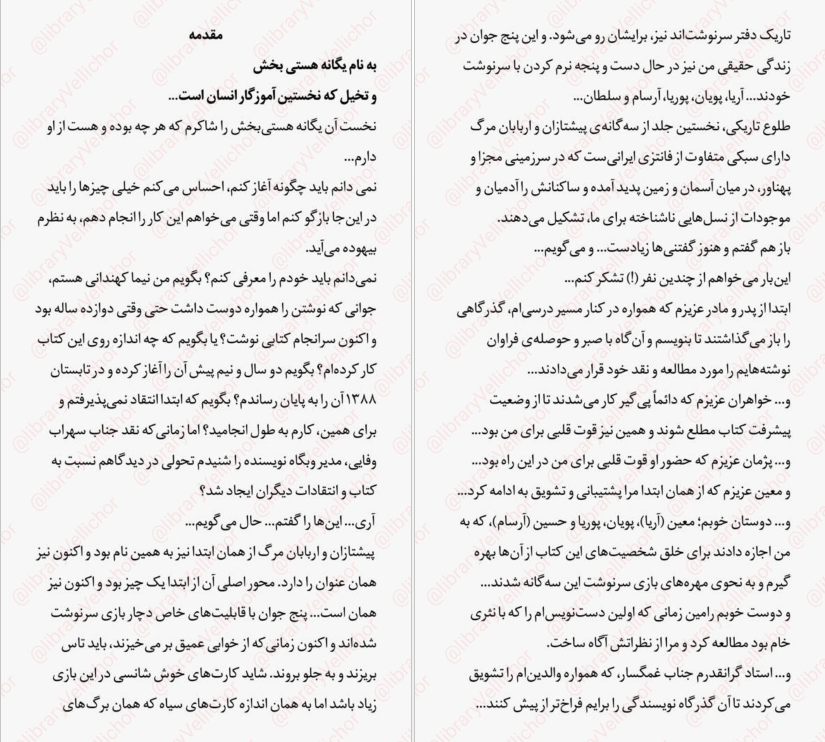 مقدمه
به نام یگانه هستی بخش
و تخیل که نخستین آموزگار انسان است...
نخست آن یگانه هستی‌بخش را شاکرم که هر چه بوده و هست از او
دارم...
نمی دانم باید چگونه آغاز کنم، احساس می‌کنم خیلی چیزها را باید
در این‌جا بازگو کنم اما وقتی می‌خواهم این کار را انجام دهم، به نظرم
بیهوده می‌آید.
نمی‌دانم باید خودم را معرفی کنم؟ بگویم من نیما کهندانی هستم،
جوانی که نوشتن را همواره دوست داشت حتی وقتی دوازده ساله بود
و اکنون سرانجام کتابی نوشت؟ یا بگویم که چه اندازه روی این کتاب
کار کرده‌ام؟ بگویم دو سال و نیم پیش آن را آغاز کرده و در تابستان
۱۳۸۸ آن را به پایان رساندم؟ بگویم که ابتدا انتقاد نمی‌پذیرفتم و
برای همین، کارم به طول انجامید؟ اما زمانی‌که نقد جناب سهراب
وفایی، مدیر وبگاه نویسنده را شنیدم تحولی در دیدگاهم نسبت به
کتاب و انتقادات دیگران ایجاد شد؟
آری... این‌ها را گفتم... حال می‌گویم...
پیشتازان و اربابان مرگ از همان ابتدا نیز به همین نام بود و اکنون نیز
همان عنوان را دارد. محور اصلی آن از ابتدا یک چیز بود و اکنون نیز
همان است... پنج جوان با قابلیت‌های خاص دچار بازی سرنوشت
شده‌اند و اکنون زمانی‌که از خوابی عمیق بر می‌خیزند، باید تاس
بریزند و به جلو بروند. شاید کارت‌های خوش شانسی در این بازی
زیاد باشد اما به همان اندازه کارت‌های سیاه که همان برگ‌های
تاریک دفتر سرنوشت‌اند نیز، برایشان رو می‌شود. و این پنج جوان در
زندگی حقیقی من نیز در حال دست و پنجه نرم کردن با سرنوشت
خودند... آریا، پویان، پوریا، آرسام و سلطان...
طلوع تاریکی، نخستین جلد از سه‌گانه‌ی پیشتازان و اربابان مرگ
دارای سبکی متفاوت از فانتزی ایرانی‌ست که در سرزمینی مجزا و
پهناور، در میان آسمان و زمین پدید آمده و ساکنانش را آدمیان و
موجودات از نسل‌هایی ناشناخته برای ما، تشکیل می‌دهند.
باز هم گفتم و هنوز گفتنی‌ها زیادست... و می‌گویم...
این‌بار می‌خواهم از چندین نفر (!) تشکر کنم...
ابتدا از پدر و مادر عزیزم که همواره در کنار مسیر درسی‌ام، گذرگاهی
را باز می‌گذاشتند تا بنویسم و آن‌گاه با صبر و حوصله‌ی فراوان
نوشته‌هایم را مورد مطالعه و نقد خود قرار می‌دادند...
و... خواهران عزیزم که دائماً پی‌گیر کار می‌شدند تا از وضعیت
پیشرفت کتاب مطلع شوند و همین نیز قوت قلبی برای من بود...
و... پژمان عزیزم که حضور او قوت قلبی برای من در این راه بود...
و معین عزیزم که از همان ابتدا مرا پشتیبانی و تشویق به ادامه کرد...
و... دوستان خوبم؛ معین (آریا)، پویان، پوریا و حسین (آرسام)، که به
من اجازه دادند برای خلق شخصیت‌های این کتاب از آن‌ها بهره
گیرم و به نحوی مهره‌های بازی سرنوشت این سه‌گانه شدند...
و دوست خوبم رامین زمانی که اولین دست‌نویس‌ام را که با نثری
خام بود مطالعه کرد و مرا از نظراتش آگاه ساخت.
و... استاد گرانقدرم جناب غمگسار، که همواره والدین‌ام را تشویق
می‌کردند تا آن گذرگاه نویسندگی را برایم فراخ‌تر از پیش کنند...
@libraryVellichor